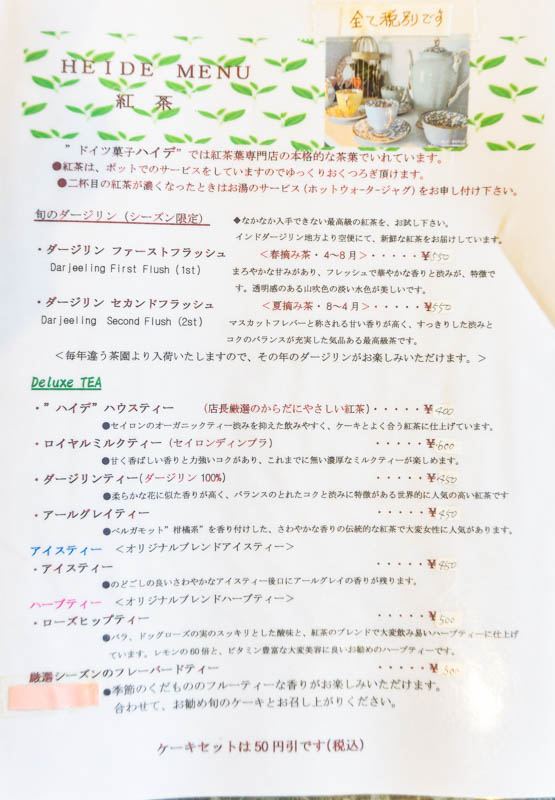 全て税別です
HEIDE MENU
紅 茶
”ドイツ菓子ハイデ”では紅茶葉専門店の本格的な茶葉でいれています。
●紅茶は、ポットでのサービスをしていますのでゆっくりおくつろぎ頂けます。
●二杯目の紅茶が濃くなったときはお湯のサービス(ホットウォータージャグ)をお申し付け下さい。
旬のダージリン (シーズン限定) ◆なかなか入手できない最高級の紅茶を、お試し下さい。
インドダージリン地方より空便にて、新鮮な紅茶をお届けしています。
・ダージリン ファーストフラッシュ <春摘み茶・4~8月>・・・・・¥550
Darjeeling First Flush (1st) まろやかな甘みがあり、フレッシュで華やかな香りと渋みが、特徴で
す。透明感のある山吹色の淡い水色が美しいです。
・ダージリン セカンドフラッシュ <夏摘み茶・8~4月>・・・・・¥550
Darjeeling Second Flush (2st) マスカットフレバーと称される甘い香りが高く、すっきりした渋みと
コクのバランスが充実した気品ある最高級茶です。
<毎年違う茶園より入荷いたしますので、その年のダージリンがお楽しみいただけます。>
Deluxe TEA
・”ハイデ”ハウスティー (店長厳選のからだにやさしい紅茶)・・・・・¥400
●セイロンのオーガニックティー渋みを抑えた飲みやすく、ケーキとよく合う紅茶に仕上げています。
・ロイヤルミルクティー(セイロンディンブラ) ・・・・・¥600
●甘く香ばしい香りと力強いコクがあり、これまでに無い濃厚なミルクティーが楽しめます。
・ダージリンティー(ダージリン 100%) ・・・・・¥450
●柔らかな花に似た香りが高く、バランスのとれたコクと渋みに特徴がある世界的に人気の高い紅茶です
・アールグレイティー ・・・・・¥450
●ベルガモット”柑橘系”を香り付けした、さわやかな香りの伝統的な紅茶で大変女性に人気があります。
アイスティー <オリジナルブレンドアイスティー>
・アイスティー ・・・・・¥450
●のどごしの良いさわやかなアイスティー後口にアールグレイの香りが残ります。
ハーブティー <オリジナルブレンドハーブティー>
・ローズヒップティー ・・・・・¥500
●バラ、ドッグローズの実のスッキリとした酸味と、紅茶のブレンドで大変飲み易いハーブティーに仕上げ
ています。レモンの60倍と、ビタミン豊富な大変美容に良いお勧めのハーブティーです。
厳選シーズンのフレーバードティー ・・・・・¥500
●季節のくだもののフルーティーな香りがお楽しみいただけます。
合わせて、お勧め旬のケーキとお召し上がりください。
ケーキセットは50円引です(税込)